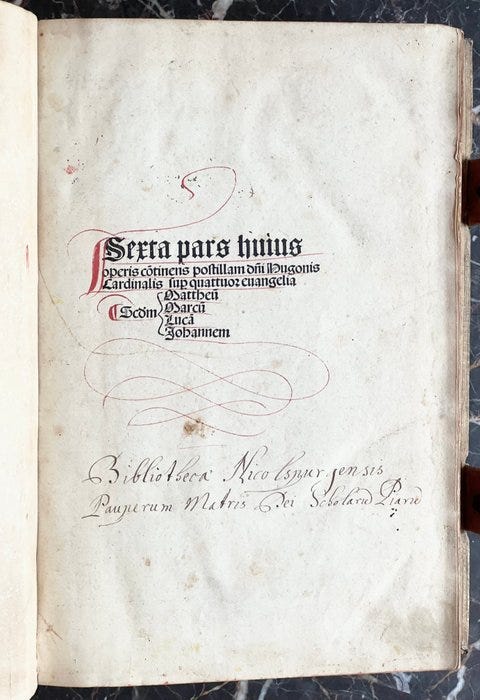 Sexta pars huius
operis cõtinens postillam dñi Hugonis
Cardinalis sup quattuor euangelia
Mattheũ
Scdm Marcũ
Lucã
Johannem
Bibliotheca Nicolspurgensis
Pauperum Matris Dei Scholarũ Piarũ